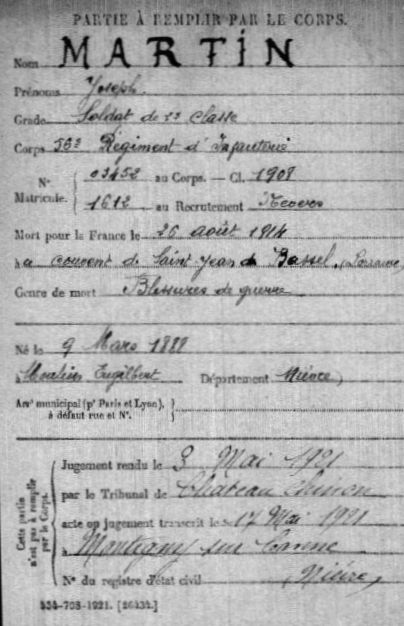 PARTIE À REMPLIR PAR LE CORPS.
Nom MARTIN
Prénoms Joseph.
Grade Soldat de 2e classe
Corps 56e Régiment d'Infanterie
N° Matricule. { 03452 au Corps. — Cl. 1908
1612 au Recrutement Nevers
Mort pour la France le 26 août 1914
à a couvent de Saint Jean de Bassel, (Lorraine)
Genre de mort Blessures de guerre
Né le 9 Mars 1888
à Moulins Engilbert Département Nièvre
Arrt municipal (pr Paris et Lyon), à défaut rue et N°. }
Cette partie n'est pas à remplir par le Corps.
Jugement rendu le 3 Mai 1921
par le Tribunal de Château Chinon
acte ou jugement transcrit le 17 Mai 1921
à Montigny sur Canne
N° du registre d'état civil Nièvre
534-708-1921. [26434.]